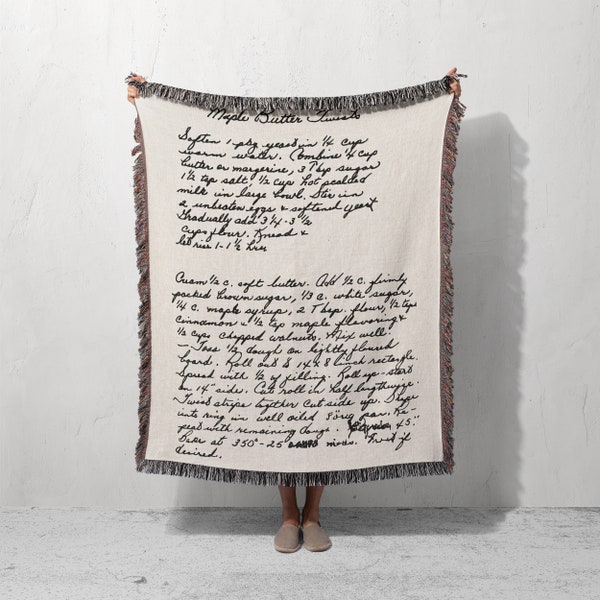 Maple Butter Twists
Soften 1 pkg yeast in ¼ cup
warm water. Combine ¼ cup
butter or margerine, 3 Tbsp sugar
1½ tsp salt, ½ cup hot scalded
milk in large bowl. Stir in
2 unbeaten eggs & softened yeast
Gradually add 3¼-3½
cups flour. Knead &
let rise 1-1½ hrs
Cream ½ c. soft butter. Add ½ c. firmly
packed brown sugar, ⅓ c. white sugar,
¼ c. maple syrup, 2 Tbsp. flour, ½ tsp
cinnamon & ½ tsp maple flavoring &
½ cups chopped walnuts. Mix well.
— Toss ½ dough on lightly floured
board. Roll out to 14 x 8 inch rectangle.
Spread with ½ of filling. Roll up - start
on 14" side. Cut roll in half lengthwise.
Twist strips together cut side up. Shape
into ring in well oiled pan. Re-
peat with remaining dough. 45."
Bake at 350° - 25 mins. Frost if
desired.